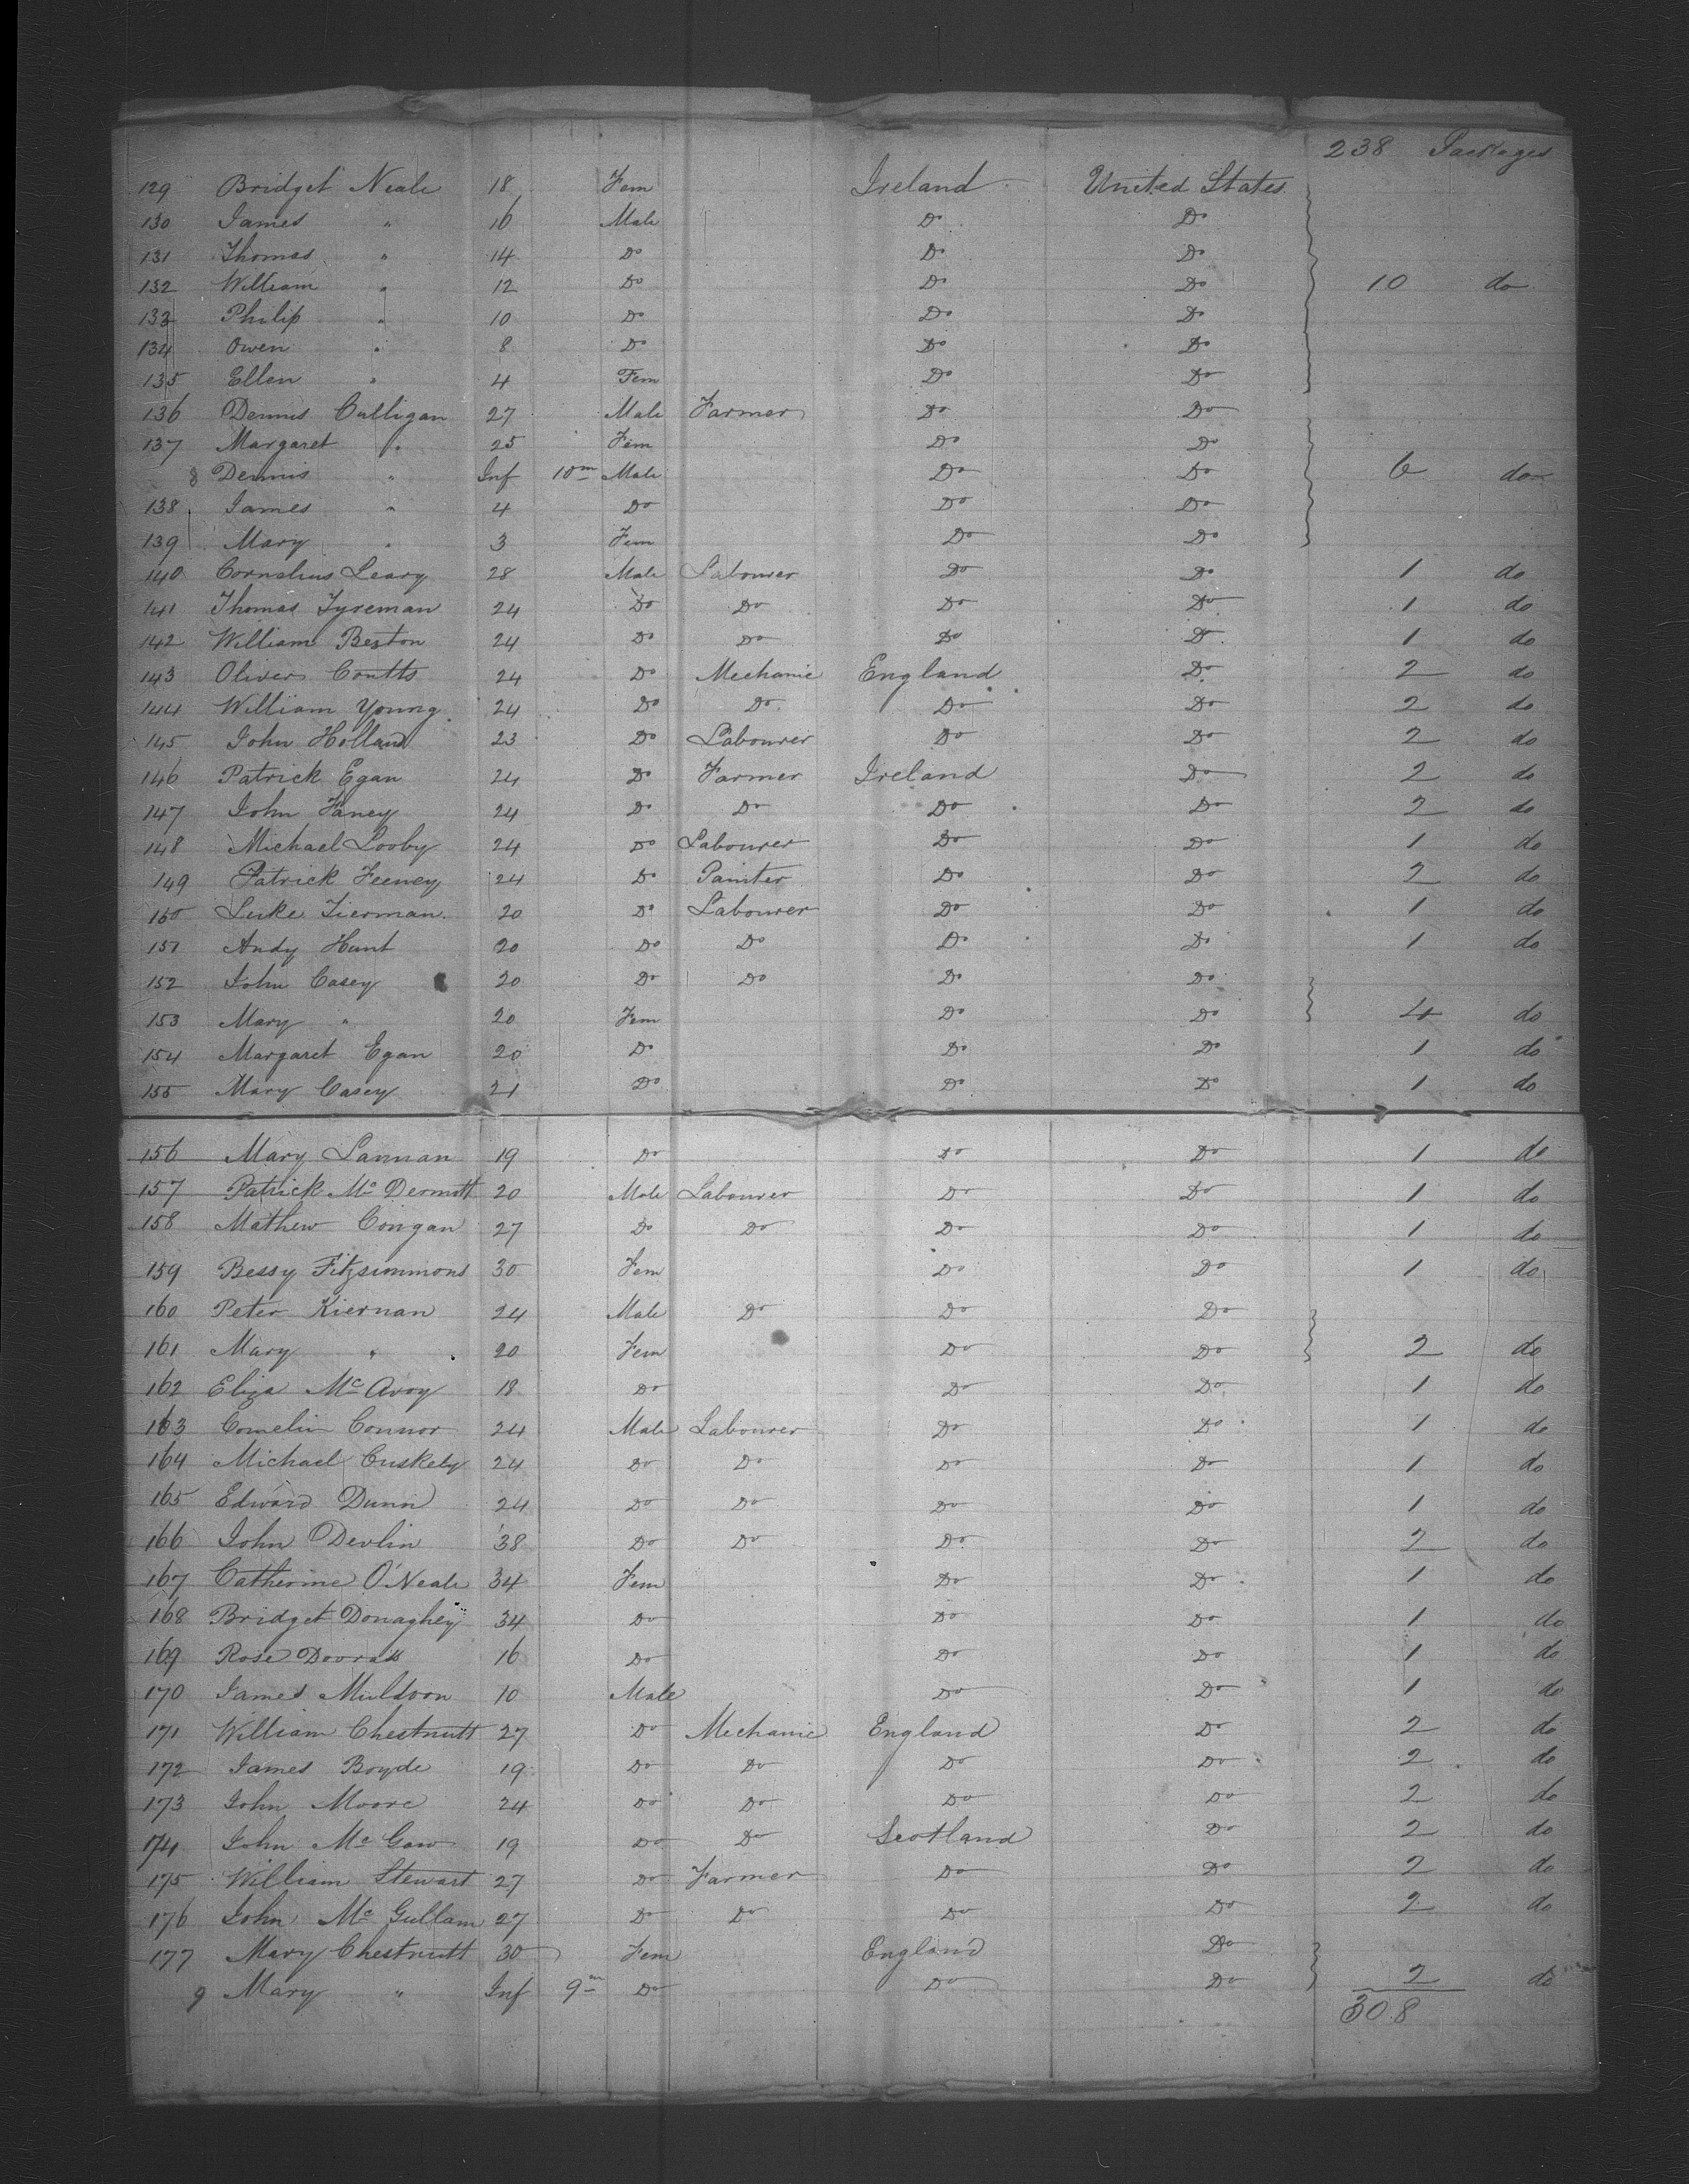 238 Packages
129 Bridget Neale 18 Fem Ireland United States
130 James " 16 Male Do Do
131 Thomas " 14 Do Do Do
132 William " 12 Do Do Do 10 do
133 Philip " 10 Do Do Do
134 Owen " 8 Do Do Do
135 Ellen " 4 Fem Do Do
136 Dennis Culligan 27 Male Farmer Do Do
137 Margaret " 25 Fem Do Do
8 Dennis " Inf 10m Male Do Do 6 do
138 James " 4 Do Do Do
139 Mary " 3 Fem Do Do
140 Cornelius Leary 28 Male Labourer Do Do 1 do
141 Thomas Tyreman 24 Do Do Do Do 1 do
142 William Beston 24 Do Do Do Do 1 do
143 Oliver Coutts 24 Do Mechanic England Do 2 do
144 William Young 24 Do Do Do Do 2 do
145 John Holland 23 Do Labourer Do Do 2 do
146 Patrick Egan 24 Do Farmer Ireland Do 2 do
147 John Faney 24 Do Do Do Do 2 do
148 Michael Looby 24 Do Labourer Do Do 1 do
149 Patrick Feeney 24 Do Painter Do Do 2 do
150 Luke Tiernan 20 Do Labourer Do Do 1 do
151 Andy Hunt 20 Do Do Do Do 1 do
152 John Casey 20 Do Do Do Do
153 Mary " 20 Fem Do Do 4 do
154 Margaret Egan 20 Do Do Do 1 do
155 Mary Casey 21 Do Do Do 1 do
156 Mary Lannan 19 Do Do Do 1 do
157 Patrick Mc Dermott 20 Male Labourer Do Do 1 do
158 Mathew Congan 27 Do Do Do Do 1 do
159 Bessy Fitzsimmons 30 Fem Do Do 1 do
160 Peter Kiernan 24 Male Do Do Do
161 Mary " 20 Fem Do Do 2 do
162 Eliza Mc Avoy 18 Do Do Do 1 do
163 Connor 24 Male Labourer Do Do 1 do
164 Michael Cuskely 24 Do Do Do Do 1 do
165 Edward Dunn 24 Do Do Do Do 1 do
166 John Devlin 38 Do Do Do Do 2 do
167 Catherine O'Neale 34 Fem Do Do 1 do
168 Bridget Donaghey 34 Do Do Do 1 do
169 Rose 16 Do Do Do 1 do
170 James Muldoon 10 Male Do Do 1 do
171 William Chestnutt 27 Do Mechanic England Do 2 do
172 James Boyde 19 Do Do Do Do 2 do
173 John Moore 24 Do Do Do Do 2 do
174 John Mc Gaw 19 Do Do Scotland Do 2 do
175 William Stewart 27 Do Farmer Do Do 2 do
176 John Mc Gullam 27 Do Do Do Do 2 do
177 Mary Chestnutt 30 Fem England Do
9 Mary " Inf 9m Do Do Do 2 do
308